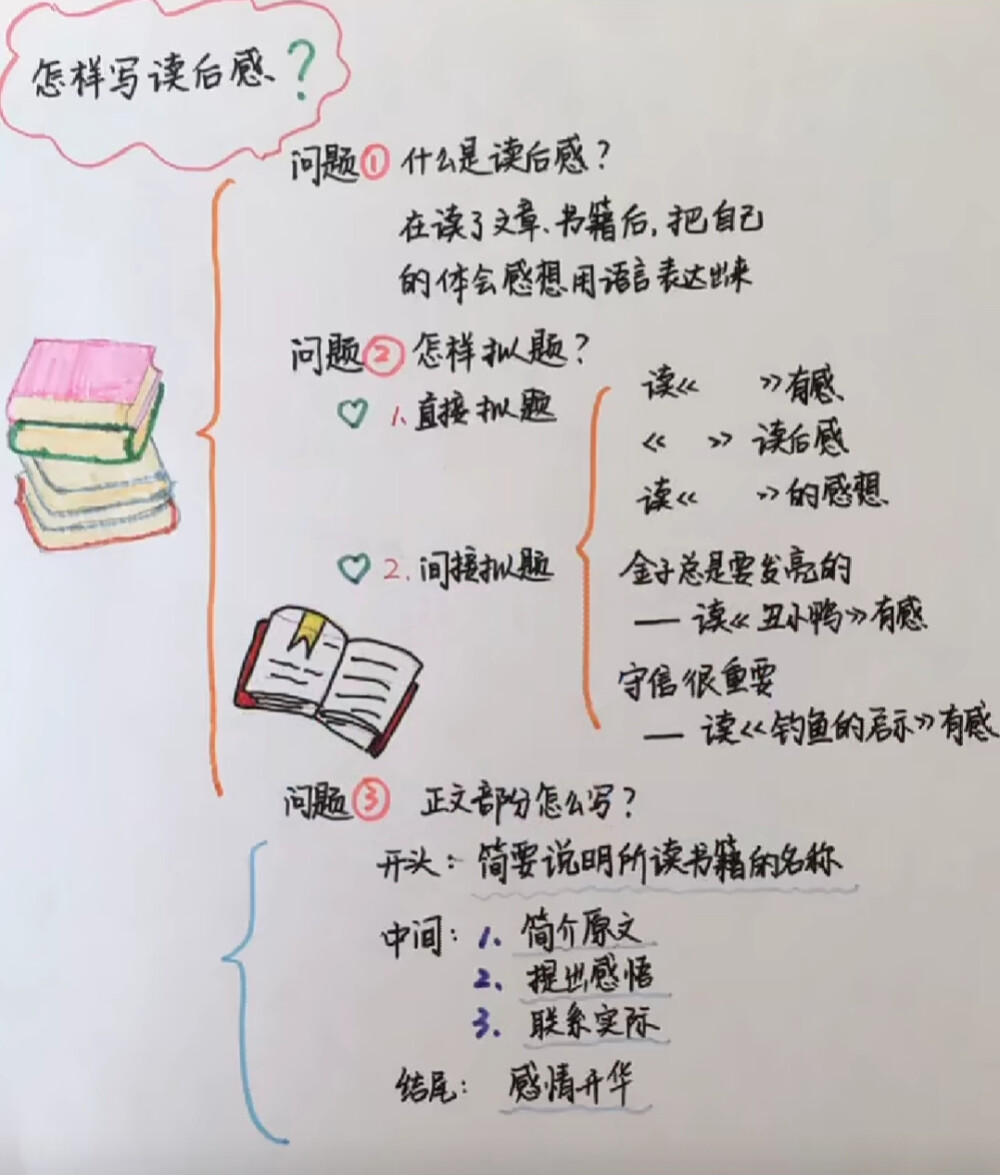 怎样写读后感?
问题① 什么是读后感?
在读了文章、书籍后,把自己
的体会感想用语言表达出来
问题② 怎样拟题?
1.直接拟题
读《 》有感
《 》读后感
读《 》的感想
2.间接拟题
金子总是要发亮的
— 读《丑小鸭》有感
守信很重要
— 读《钓鱼的启示》有感
问题③ 正文部分怎么写?
开头:简要说明所读书籍的名称
中间:1、简介原文
2、提出感悟
3、联系实际
结尾:感情开华